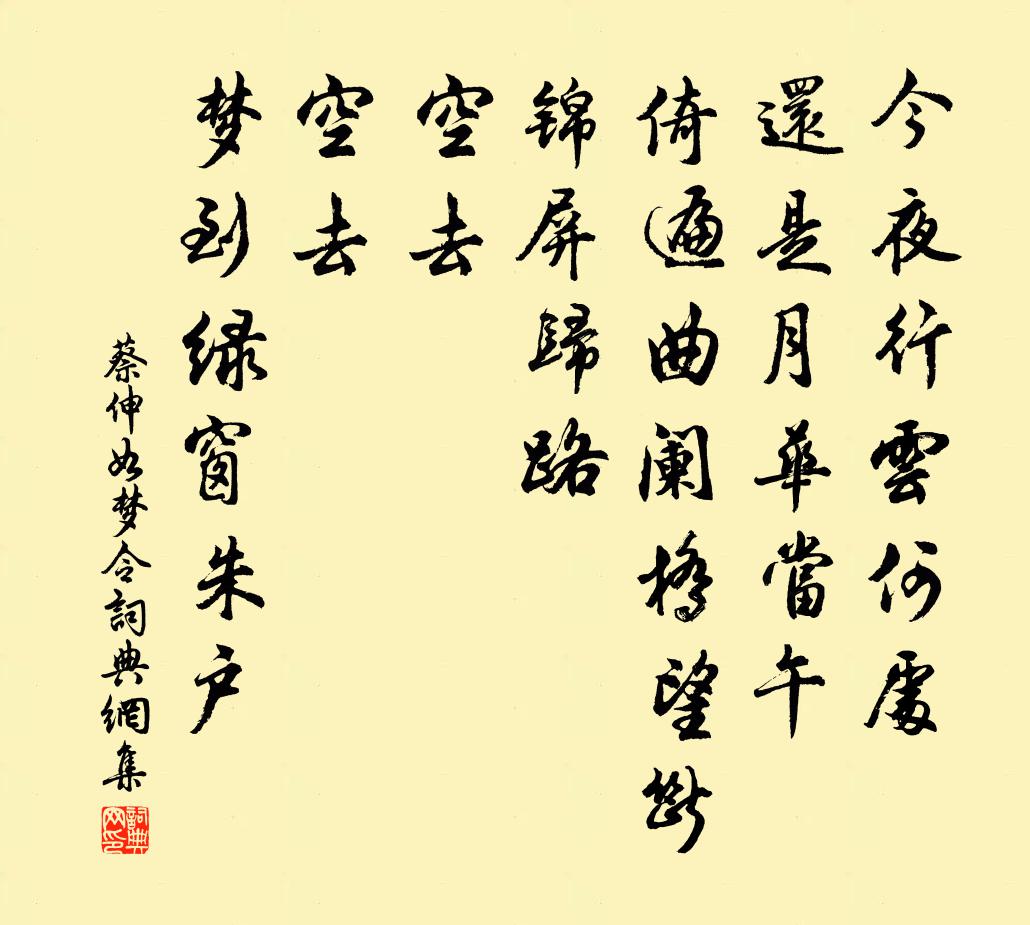 今夜行雲何處
還是月華當午
倚遍曲阑橋望断
锦屏歸路
空去
空去
梦到绿窗朱户
蔡伸如梦令詞典網集
詞典网印